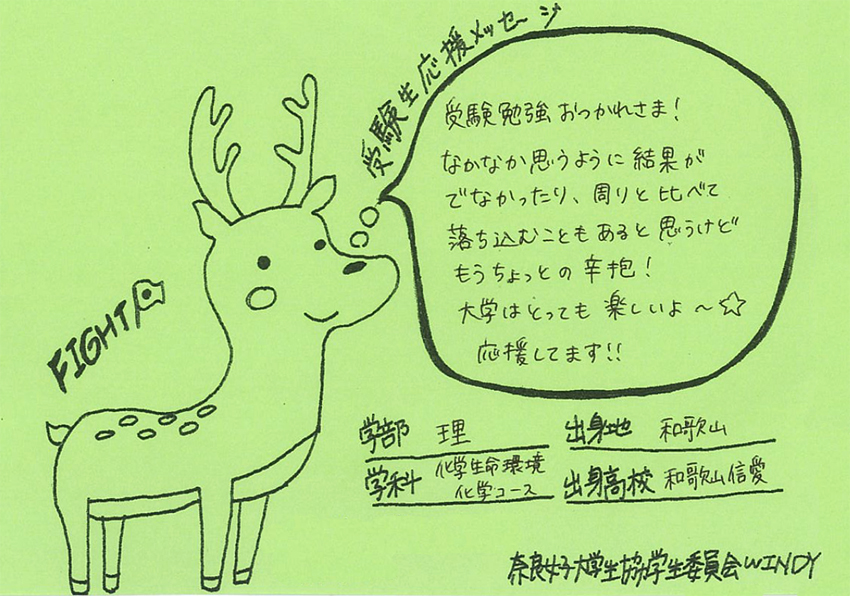 受験生応援メッセージ
受験勉強おつかれさま!
なかなか思うように結果が
でなかったり、周りと比べて
落ち込むこともあると思うけど
もうちょっとの辛抱!
大学はとっても楽しいよ~☆
応援してます!!
FIGHT!
学部 理
出身地 和歌山
学科 化学生命環境
化学コース
出身高校 和歌山信愛
奈良女子大学生協学生委員会WINDY